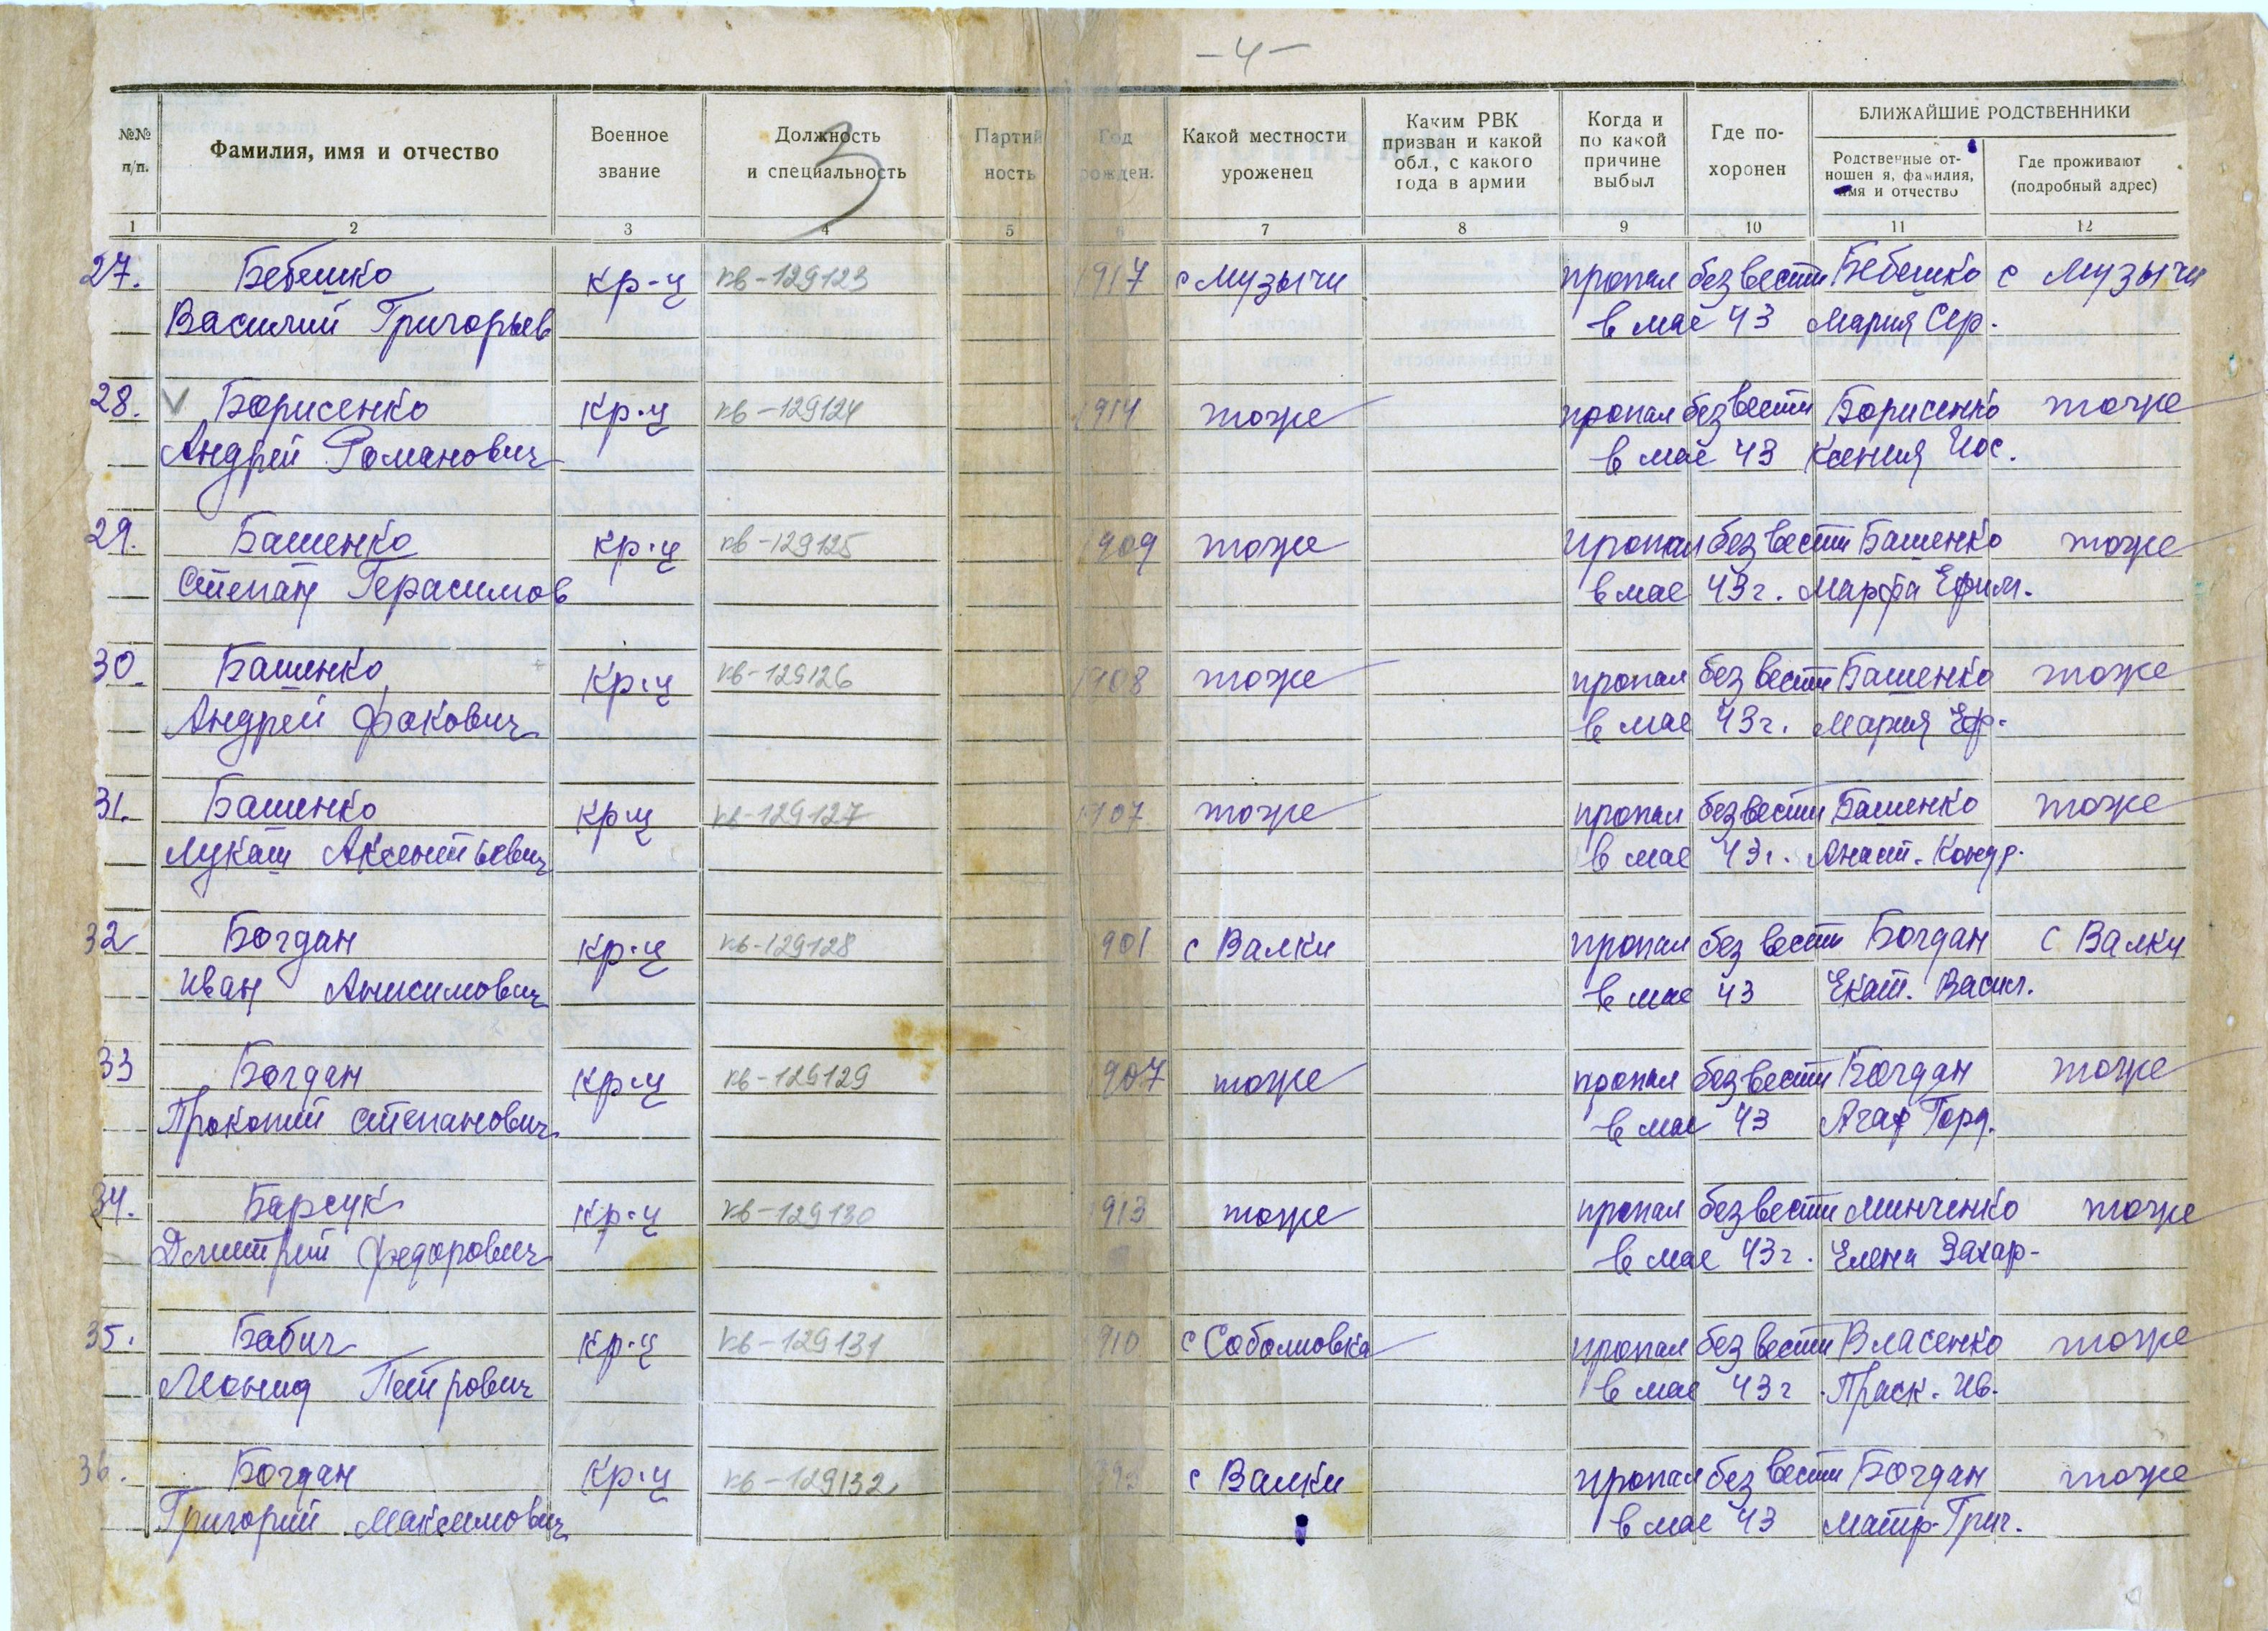 -4-
3
№№ п/п.
Фамилия, имя и отчество
Военное звание
Должность и специальность
Партий ность
Год рожден.
Какой местности уроженец
Каким РВК призван и какой обл., с какого года в армии
Когда и по какой причине выбыл
Где по- хоронен
БЛИЖАЙШИЕ РОДСТВЕННИКИ
Родственные от- ношен я, фамилия, имя и отчество
Где проживают (подробный адрес)
1 2 3 4 5 6 7 8 9 10 11 12
27. Бебешко кр-ц кв-129123 1917 с Музычи пропал без вести Бебешко с Музычи
Василий Григорьев в мае 43 Мария Сер.
28. V Борисенко кр-ц кв-129124 1914 тоже пропал без вести Борисенко тоже
Андрей Романович в мае 43 Ксения Иос.
29. Башенко кр-ц кв-129125 1909 тоже пропал без вести Башенко тоже
Степан Герасимов в мае 43 г. Марфа Ефим.
30. Башенко кр-ц кв-129126 1908 тоже пропал без вести Башенко тоже
Андрей Фокович в мае 43 г. Мария Еф.
31. Башенко кр-ц кв-129127 1907 тоже пропал без вести Башенко тоже
Лукаш Аксентьевич в мае 43 г. Анаст. Кондр.
32 Богдан кр-ц кв-129128 901 с Валки пропал без вести Богдан с Валки
Иван Анисимович в мае 43 Екат. Васил.
33 Богдан кр-ц кв-129129 907 тоже пропал без вести Богдан тоже
Прокопий Степанович в мае 43 Агаф Горд.
34. Барсук кр-ц кв-129130 913 тоже пропал без вести Минченко тоже
Дмитрий Федорович в мае 43 г. Елена Захар-
35. Бабич кр-ц кв-129131 910 с Соболиовка пропал без вести Власенко тоже
Леонид Петрович в мае 43 г Праск. Ив.
36. Богдан кр-ц кв-129132 с Валки пропал без вести Богдан тоже
Григорий Максимович в мае 43 Матр. Григ.